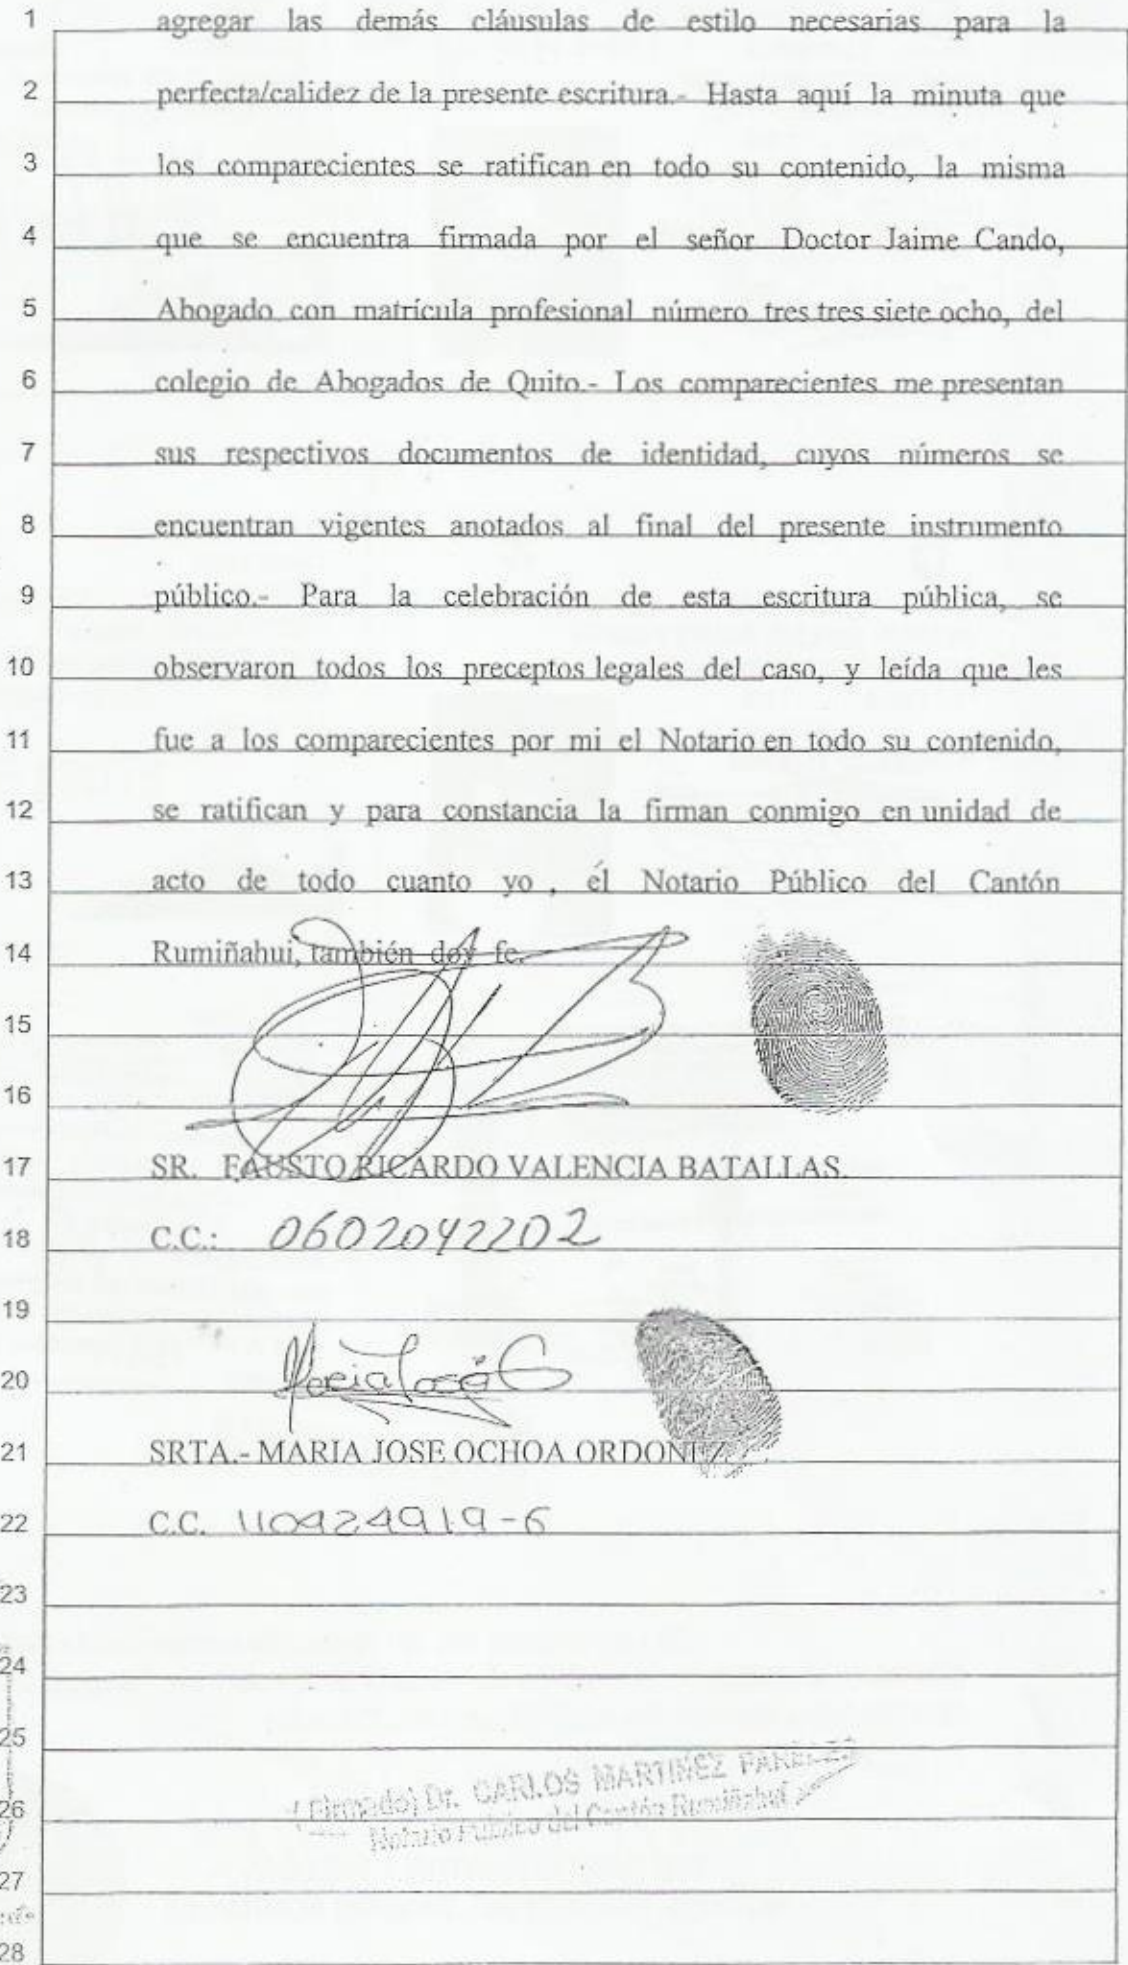 1 agregar las demás cláusulas de estilo necesarias para la
2 perfecta/calidez de la presente escritura.- Hasta aquí la minuta que
3 los comparecientes se ratifican en todo su contenido, la misma
4 que se encuentra firmada por el señor Doctor Jaime Cando,
5 Abogado con matrícula profesional número tres tres siete ocho, del
6 colegio de Abogados de Quito.- Los comparecientes me presentan
7 sus respectivos documentos de identidad, cuyos números se
8 encuentran vigentes anotados al final del presente instrumento
9 público.- Para la celebración de esta escritura pública, se
10 observaron todos los preceptos legales del caso, y leída que les
11 fue a los comparecientes por mi el Notario en todo su contenido,
12 se ratifican y para constancia la firman conmigo en unidad de
13 acto de todo cuanto yo , él Notario Público del Cantón
14 Rumiñahui, también doy fe.
15
16
17 SR. FAUSTO RICARDO VALENCIA BATALLAS.
18 C.C.: 0602042202
19
20 Maria José O
21 SRTA.- MARIA JOSE OCHOA ORDOÑEZ
22 C.C. 110424919-6
23
24
25 (Firmado) Dr. CARLOS MARTINEZ PAREDES
26 Notario Público del Cantón Rumiñahui
27
28